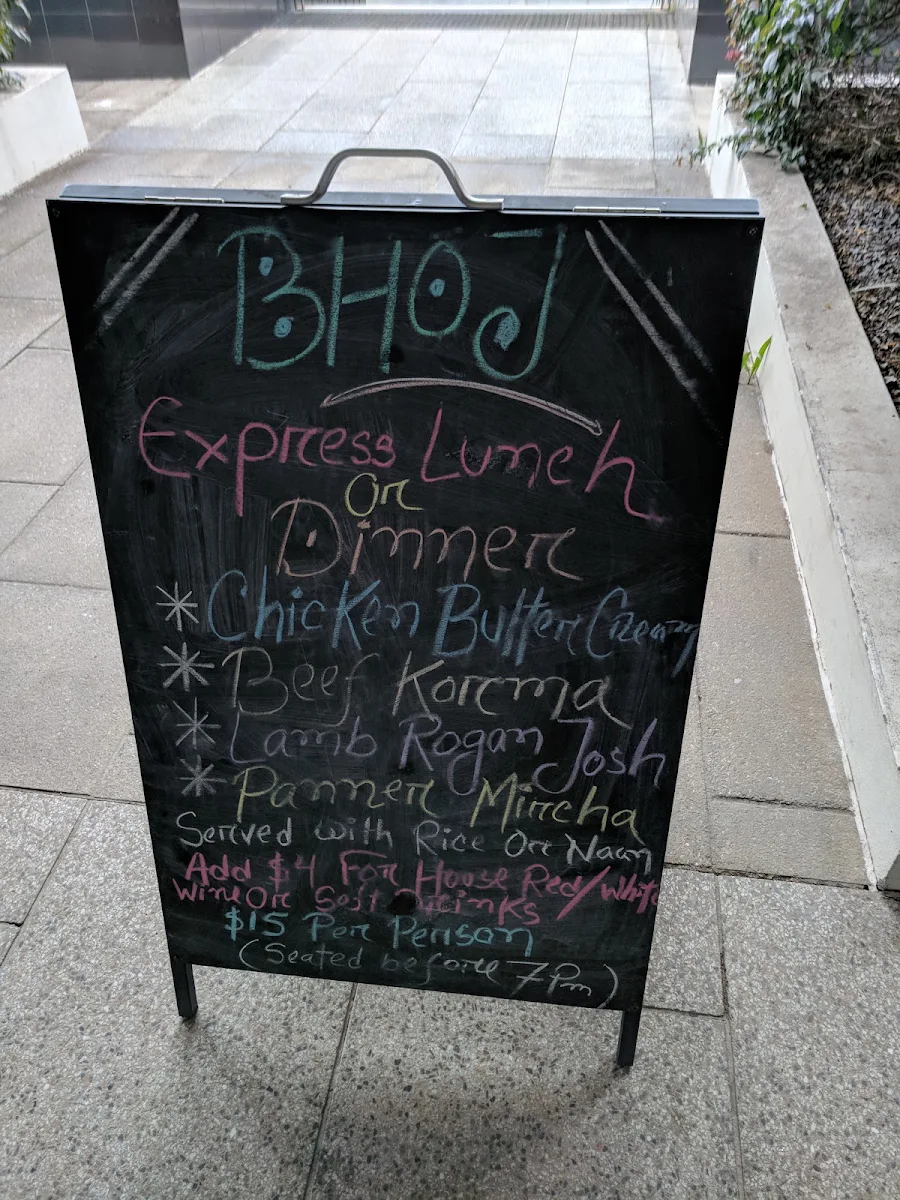 BHOJ
Express Lunch
Or
Dinner
* Chicken Butter Cream
* Beef Korema
* Lamb Rogan Josh
* Panner Mircha
Served with Rice Or Naan
Add $4 For House Red/White
Wine Or Soft Drinks
$15 Per Person
(Seated before 7Pm)